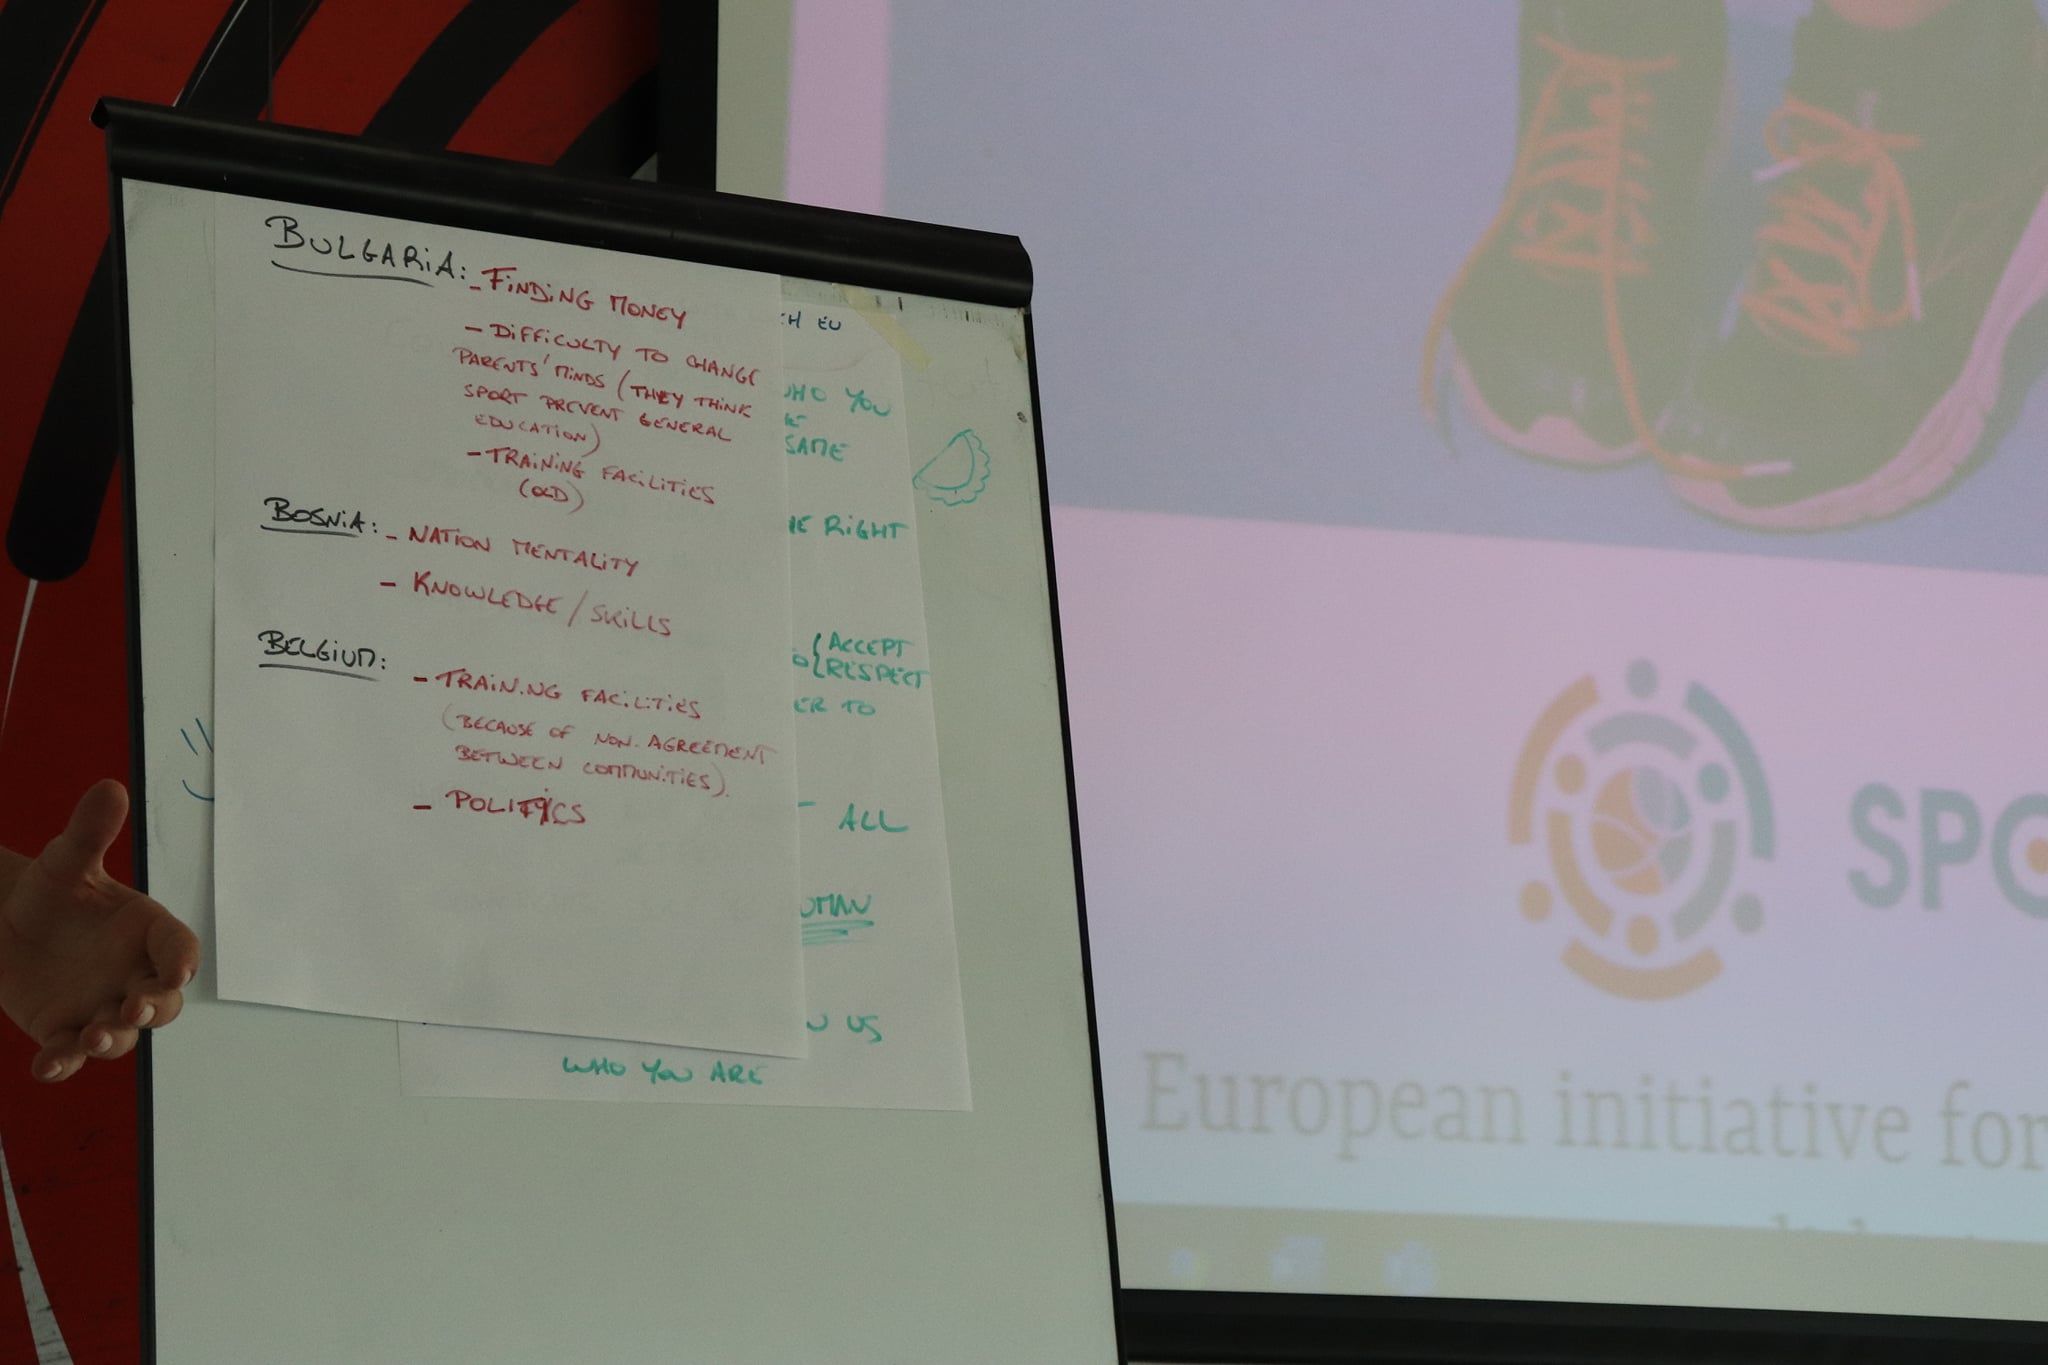 BULGARIA: - FINDING MONEY
- DIFFICULTY TO CHANGE
PARENTS' MINDS (THEY THINK
SPORT PREVENT GENERAL
EDUCATION)
- TRAINING FACILITIES
(OLD)
BOSNIA: - NATION MENTALITY
- KNOWLEDGE / SKILLS
BELGIUM:
- TRAINING FACILITIES
(BECAUSE OF NON. AGREEMENT
BETWEEN COMMUNITIES).
- POLITICS
EU
WHO YOU
SAME
RIGHT
{ACCEPT
{RESPECT
TO
ALL
US
WHO YOU ARE
SPO
European initiative for